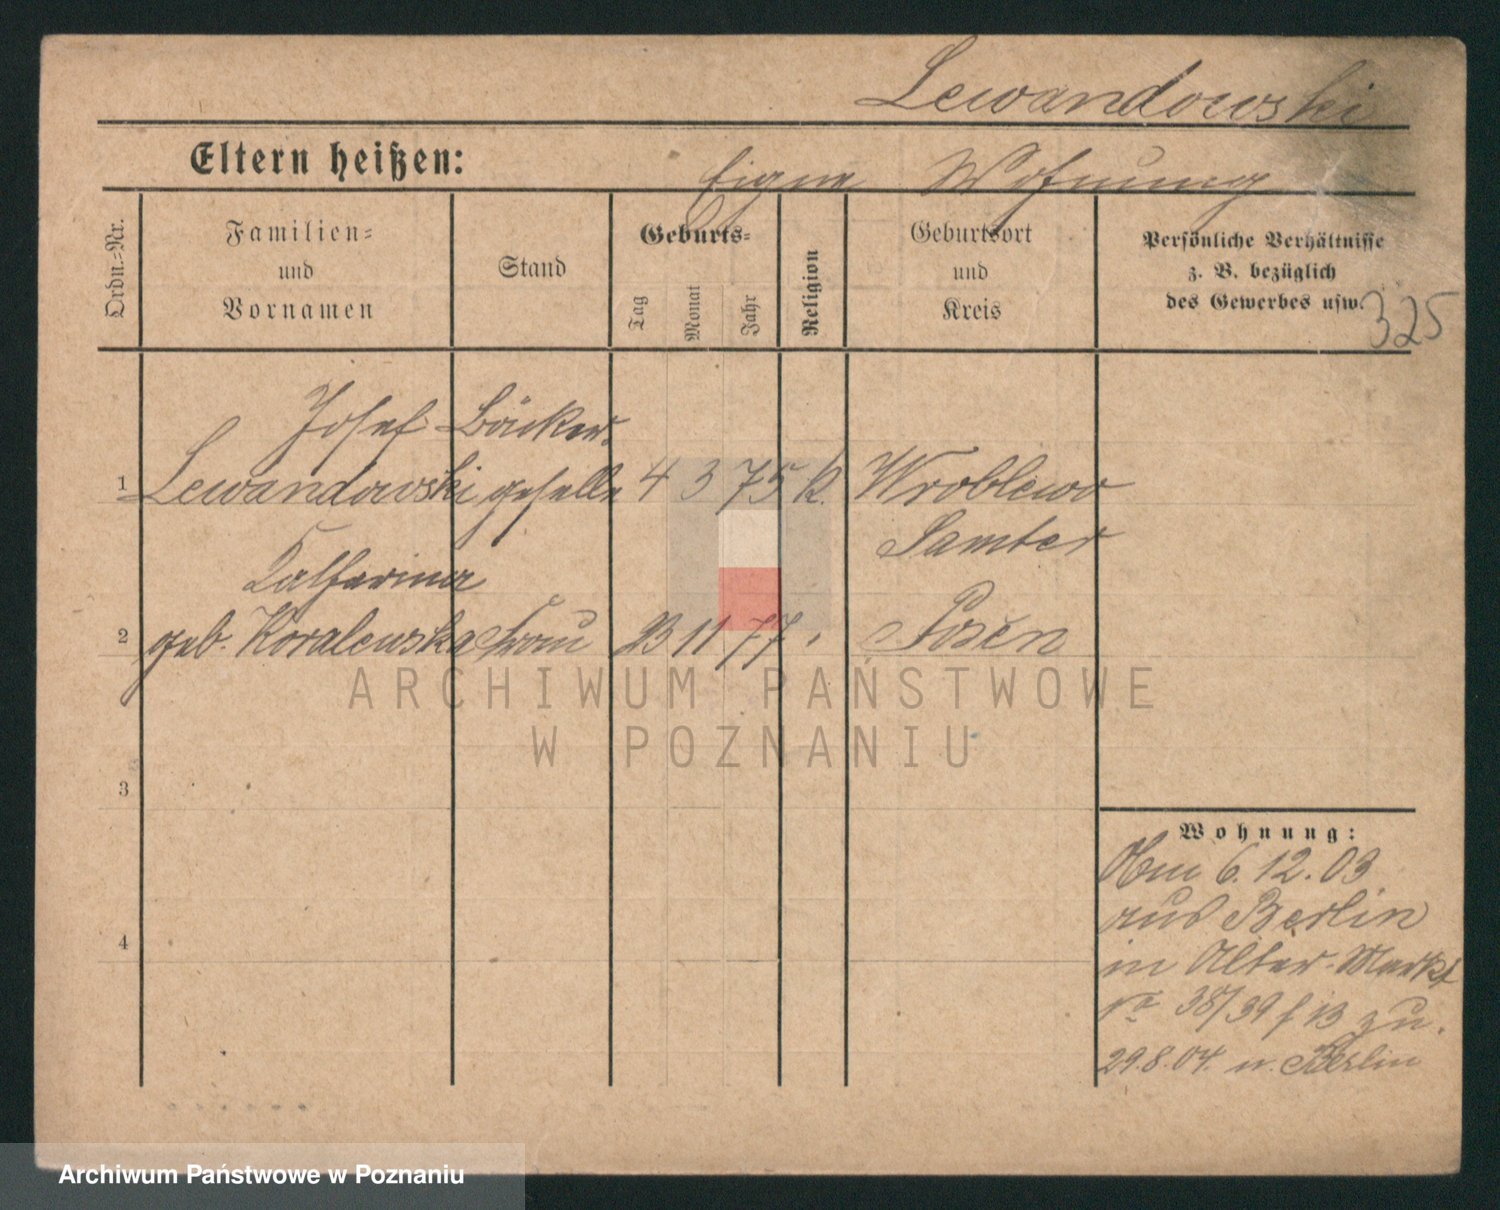 Lewandowski
Eltern heißen:
Eigene Wohnung
Ordn.-Nr.
Familien-
und
Vornamen
Stand
Geburts-
Tag
Monat
Jahr
Religion
Geburtsort
und
Kreis
Persönliche Verhältnisse
z. B. bezüglich
des Gewerbes usw.
325
Josef Bäcker-
1 Lewandowski geselle 4 3 75 k. Wroblewo
Samter
Katharina
2 geb. Kovalewska Frau 23 11 77 Posen
ARCHIWUM PAŃSTWOWE
W POZNANIU
3
4
Wohnung:
Am 6.12.03
aus Berlin
in Alter-Markt
No 38/39 b 13 zu.
29.8.04. n. Berlin
Archiwum Państwowe w Poznaniu